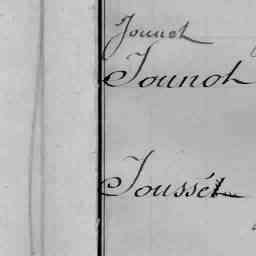 Jounot
Jounot
Joussét